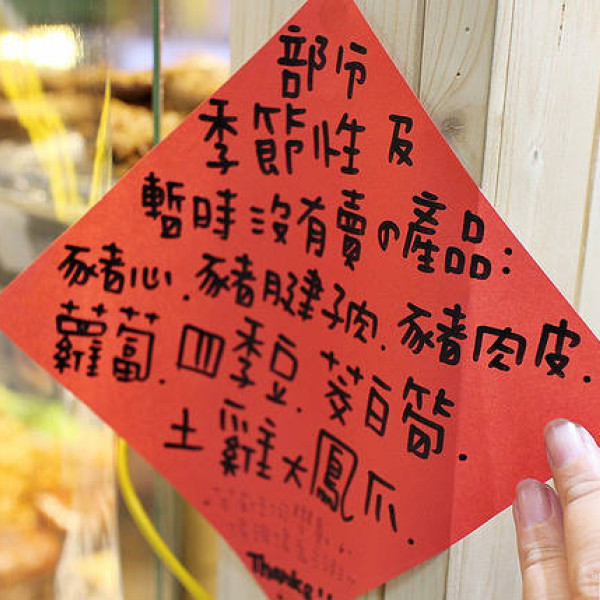 部分
季節性及
暫時沒有賣の產品:
豬心.豬腱子肉.豬肉皮.
蘿蔔.四季豆.茭白筍.
土雞大鳳爪.
Thanks!!